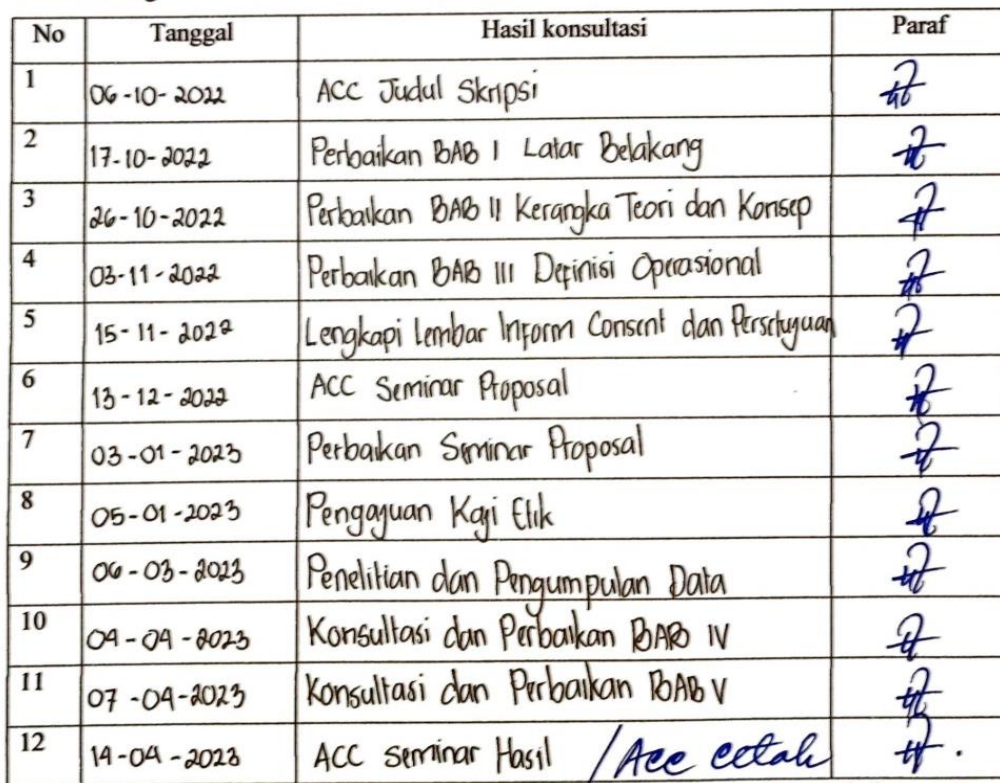 No Tanggal Hasil konsultasi Paraf
1 06-10-2022 ACC Judul Skripsi
2 17-10-2022 Perbaikan BAB I Latar Belakang
3 26-10-2022 Perbaikan BAB II Kerangka Teori dan Konsep
4 03-11-2022 Perbaikan BAB III Definisi Operasional
5 15-11-2022 Lengkapi Lembar Inform Consent dan Persetujuan
6 13-12-2022 ACC Seminar Proposal
7 03-01-2023 Perbaikan Seminar Proposal
8 05-01-2023 Pengajuan Kaji Etik
9 06-03-2023 Penelitian dan Pengumpulan Data
10 04-04-2023 Konsultasi dan Perbaikan BAB IV
11 07-04-2023 Konsultasi dan Perbaikan BAB V
12 14-04-2023 ACC Seminar Hasil / Acc cetak